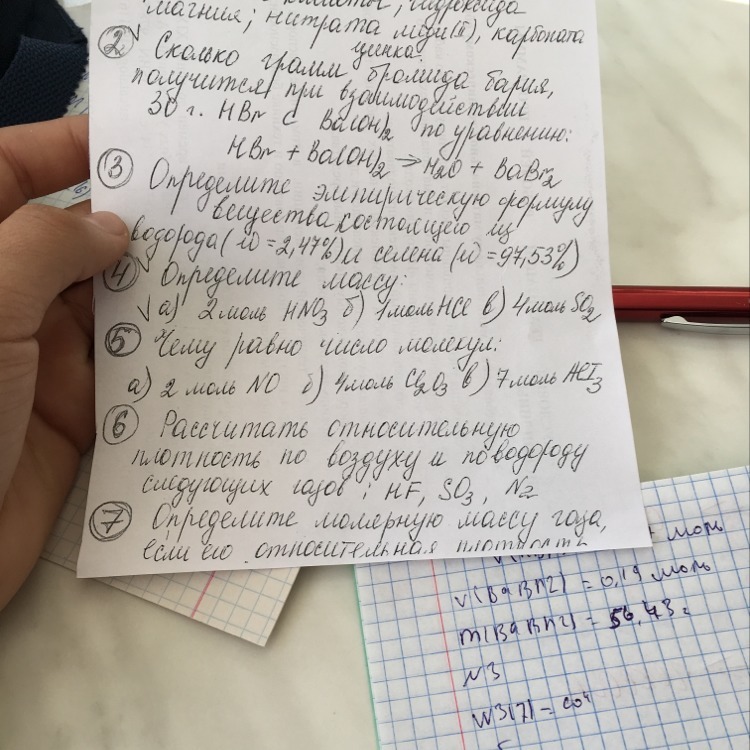 магния; нитрата меди(II), карбоната
цинка.
② Сколько грамм бромида бария,
получится при взаимодействии
30 г. HBr с Ba(OH)2 по уравнению:
HBr + Ba(OH)2 → H2O + BaBr2
③ Определите эмпирическую формулу
вещества, состоящего из
водорода (w = 2,47%) и селена (w = 97,53%)
④ Определите массу:
а) 2 моль HNO3 б) 1 моль HCl в) 4 моль SO2
⑤ Чему равно число молекул:
а) 2 моль NO б) 4 моль Cl2O3 в) 7 моль AlI3
⑥ Рассчитать относительную
плотность по воздуху и по водороду
следующих газов: HF, SO3, N2
⑦ Определите молярную массу газа,
если его относительная плотность
моль
ν(BaBr2) = 0,19 моль
m(BaBr2) = 56,43 г
N3